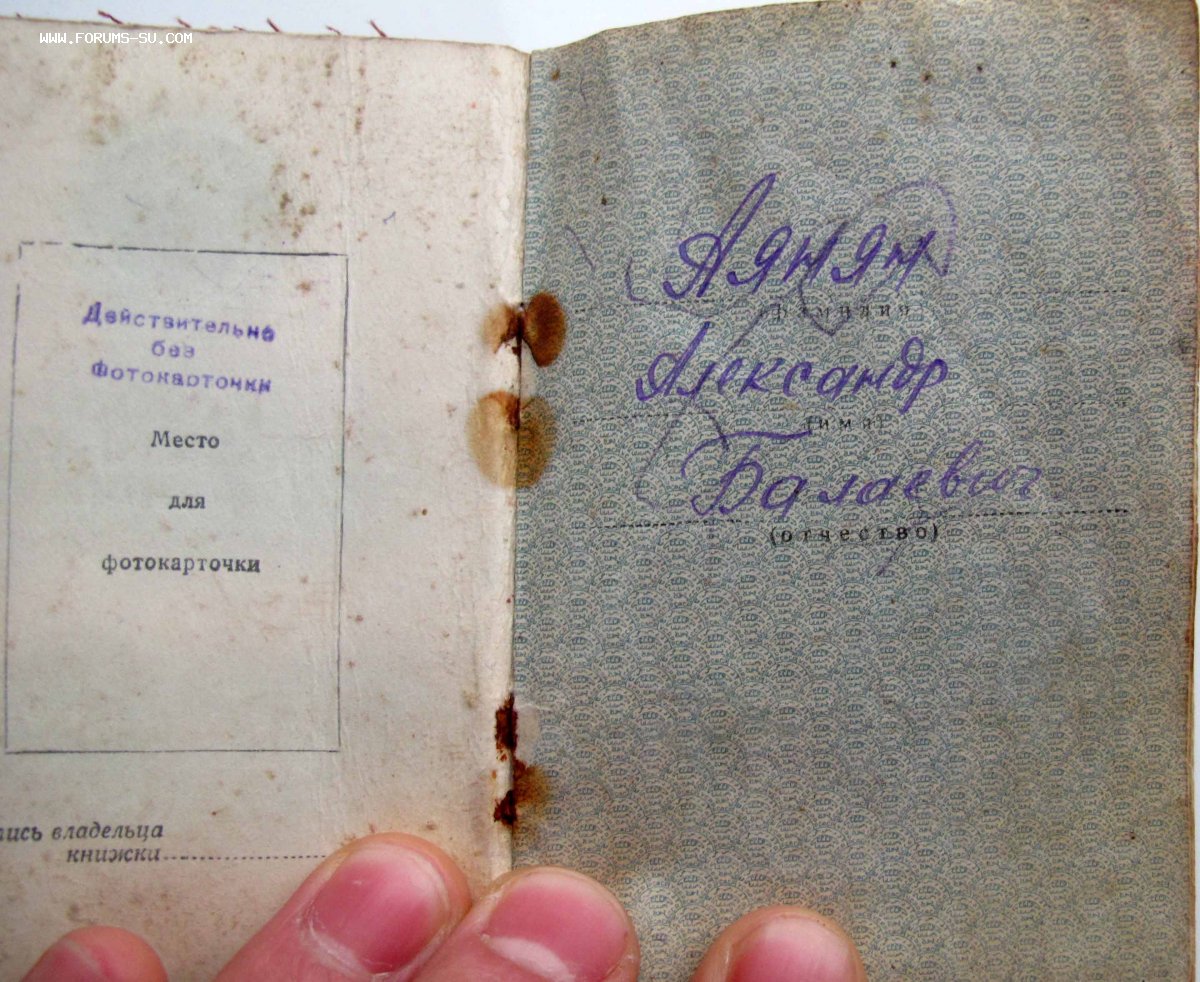 WWW.FORUMS-SU.COM
Действительно
без
Фотокарточки
Место
для
фотокарточки
пись владельца
книжки
Аянян
(фамилия)
Александр
(имя)
Балаевич
(отчество)